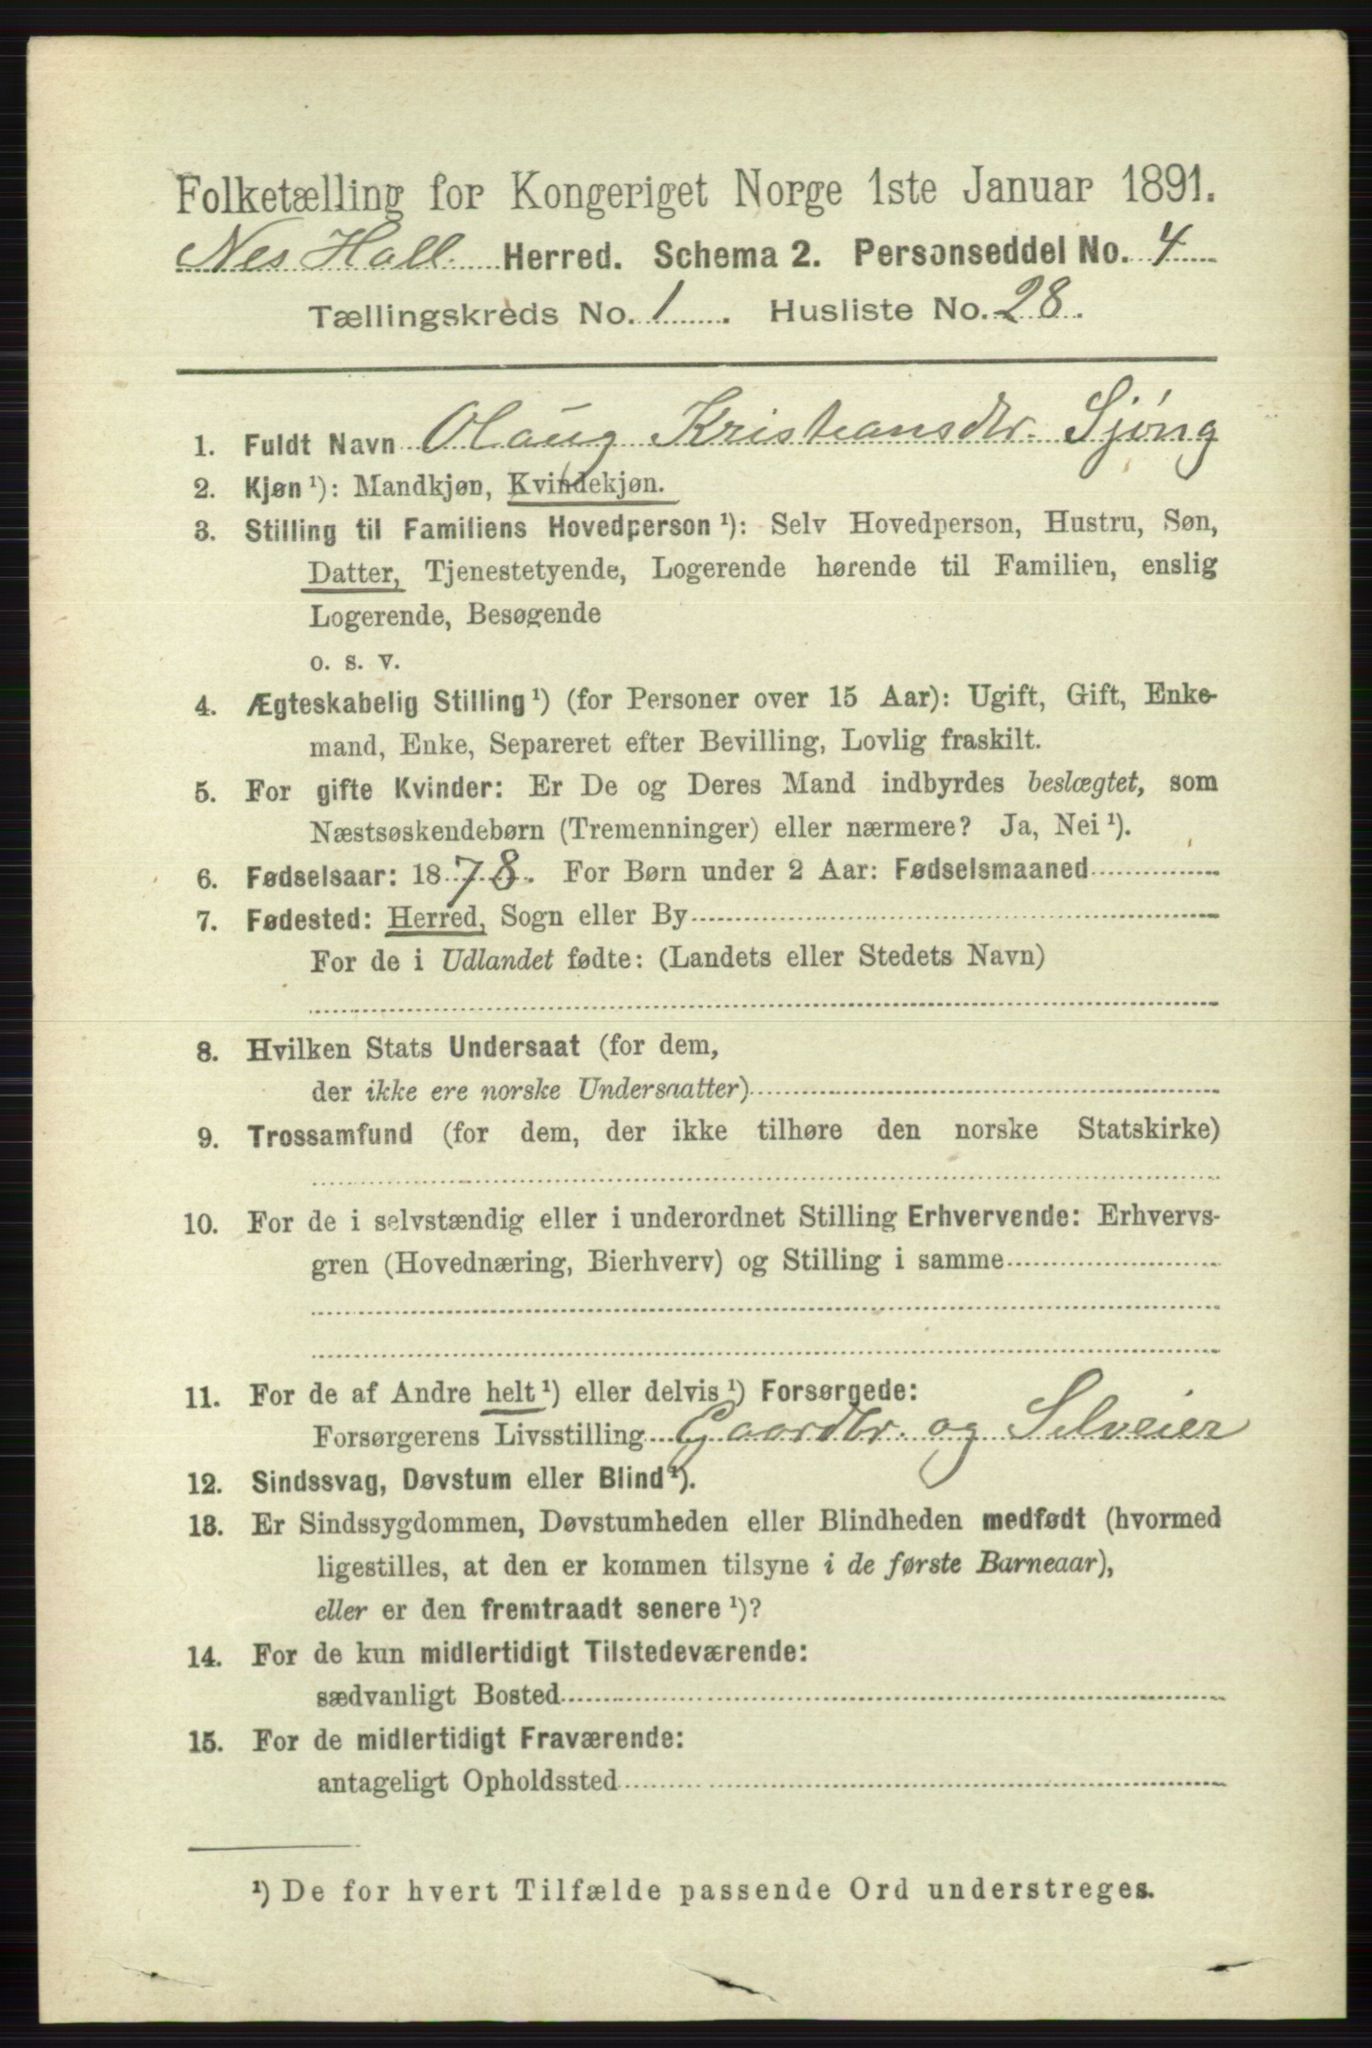 Folketælling for Kongeriget Norge 1ste Januar 1891.
Nes Hall. Herred. Schema 2. Personseddel No. 4
Tællingskreds No. 1. Husliste No. 28.
1. Fuldt Navn Olaug Kristiansdtr. Sjøng
2. Kjøn ¹): Mandkjøn, Kvindekjøn.
3. Stilling til Familiens Hovedperson ¹): Selv Hovedperson, Hustru, Søn,
Datter, Tjenestetyende, Logerende hørende til Familien, enslig
Logerende, Besøgende
o. s. v.
4. Ægteskabelig Stilling ¹) (for Personer over 15 Aar): Ugift, Gift, Enke-
mand, Enke, Separeret efter Bevilling, Lovlig fraskilt.
5. For gifte Kvinder: Er De og Deres Mand indbyrdes beslægtet, som
Næstsøskendebørn (Tremenninger) eller nærmere? Ja, Nei ¹).
6. Fødselsaar: 1878. For Børn under 2 Aar: Fødselsmaaned
7. Fødested: Herred, Sogn eller By
For de i Udlandet fødte: (Landets eller Stedets Navn)
8. Hvilken Stats Undersaat (for dem,
der ikke ere norske Undersaatter)
9. Trossamfund (for dem, der ikke tilhøre den norske Statskirke)
10. For de i selvstændig eller i underordnet Stilling Erhvervende: Erhvervs-
gren (Hovednæring, Bierhverv) og Stilling i samme
11. For de af Andre helt ¹) eller delvis ¹) Forsørgede:
Forsørgerens Livsstilling Gaardbr. og Selveier
12. Sindssvag, Døvstum eller Blind ¹).
13. Er Sindssygdommen, Døvstumheden eller Blindheden medfødt (hvormed
ligestilles, at den er kommen tilsyne i de første Barneaar),
eller er den fremtraadt senere ¹)?
14. For de kun midlertidigt Tilstedeværende:
sædvanligt Bosted
15. For de midlertidigt Fraværende:
antageligt Opholdssted
¹) De for hvert Tilfælde passende Ord understreges.